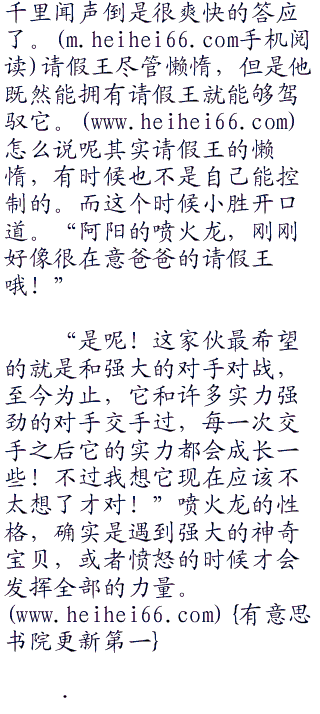 千里闻声倒是很爽快的答应
了。(m.heihei66.com手机阅
读)请假王尽管懒惰，但是他
既然能拥有请假王就能够驾
驭它。(www.heihei66.com)
怎么说呢其实请假王的懒
惰，有时候也不是自己能控
制的。而这个时候小胜开口
道。“阿阳的喷火龙，刚刚
好像很在意爸爸的请假王
哦！”
“是呢！这家伙最希望
的就是和强大的对手对战，
至今为止，它和许多实力强
劲的对手交手过，每一次交
手之后它的实力都会成长一
些！不过我想它现在应该不
太想了才对！”喷火龙的性
格，确实是遇到强大的神奇
宝贝，或者愤怒的时候才会
发挥全部的力量。
(www.heihei66.com){有意思
书院更新第一}
.